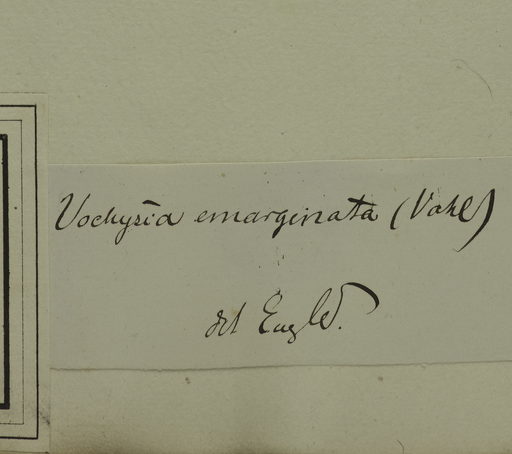 Vochysia emarginata (Vahl)
det Engler.